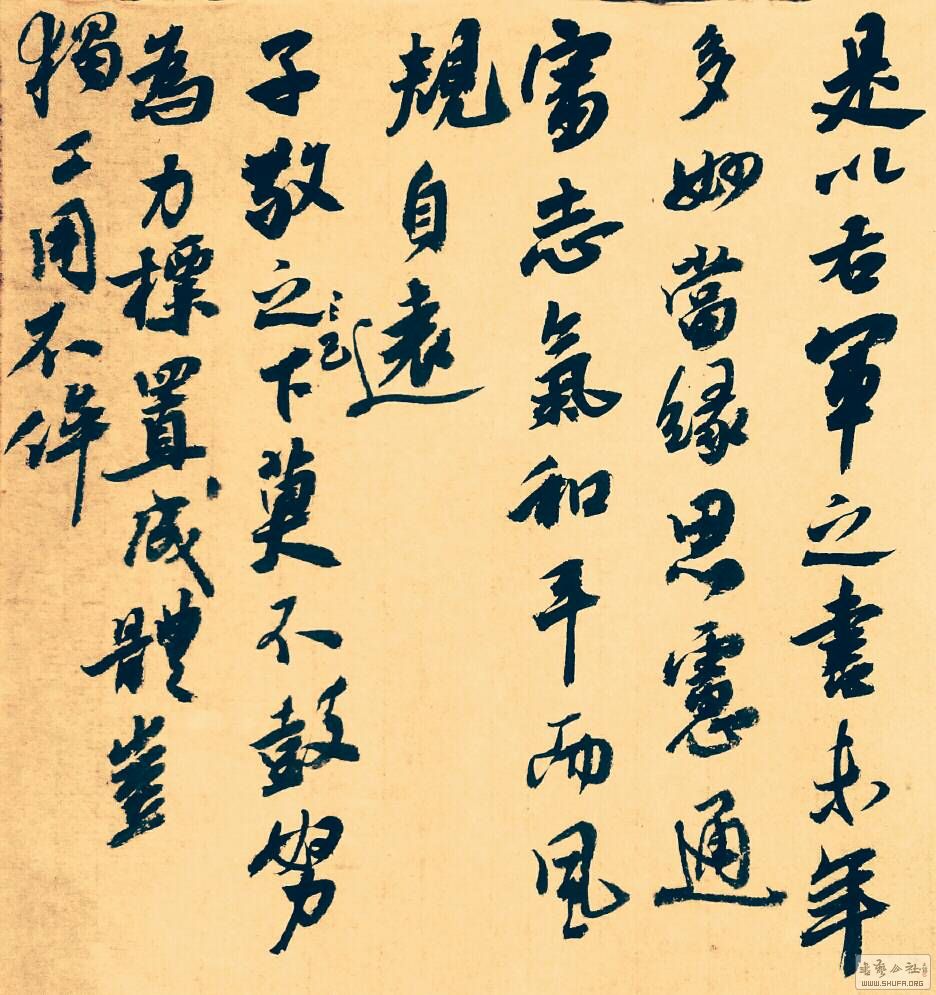 是以右軍之書末年
多妙當緣思慮通
審志氣和平而風
規自遠
子敬之下莫不鼓努
已
為力標置成體豈
獨工用不侔
書藝公社
WWW.SHUFA.ORG